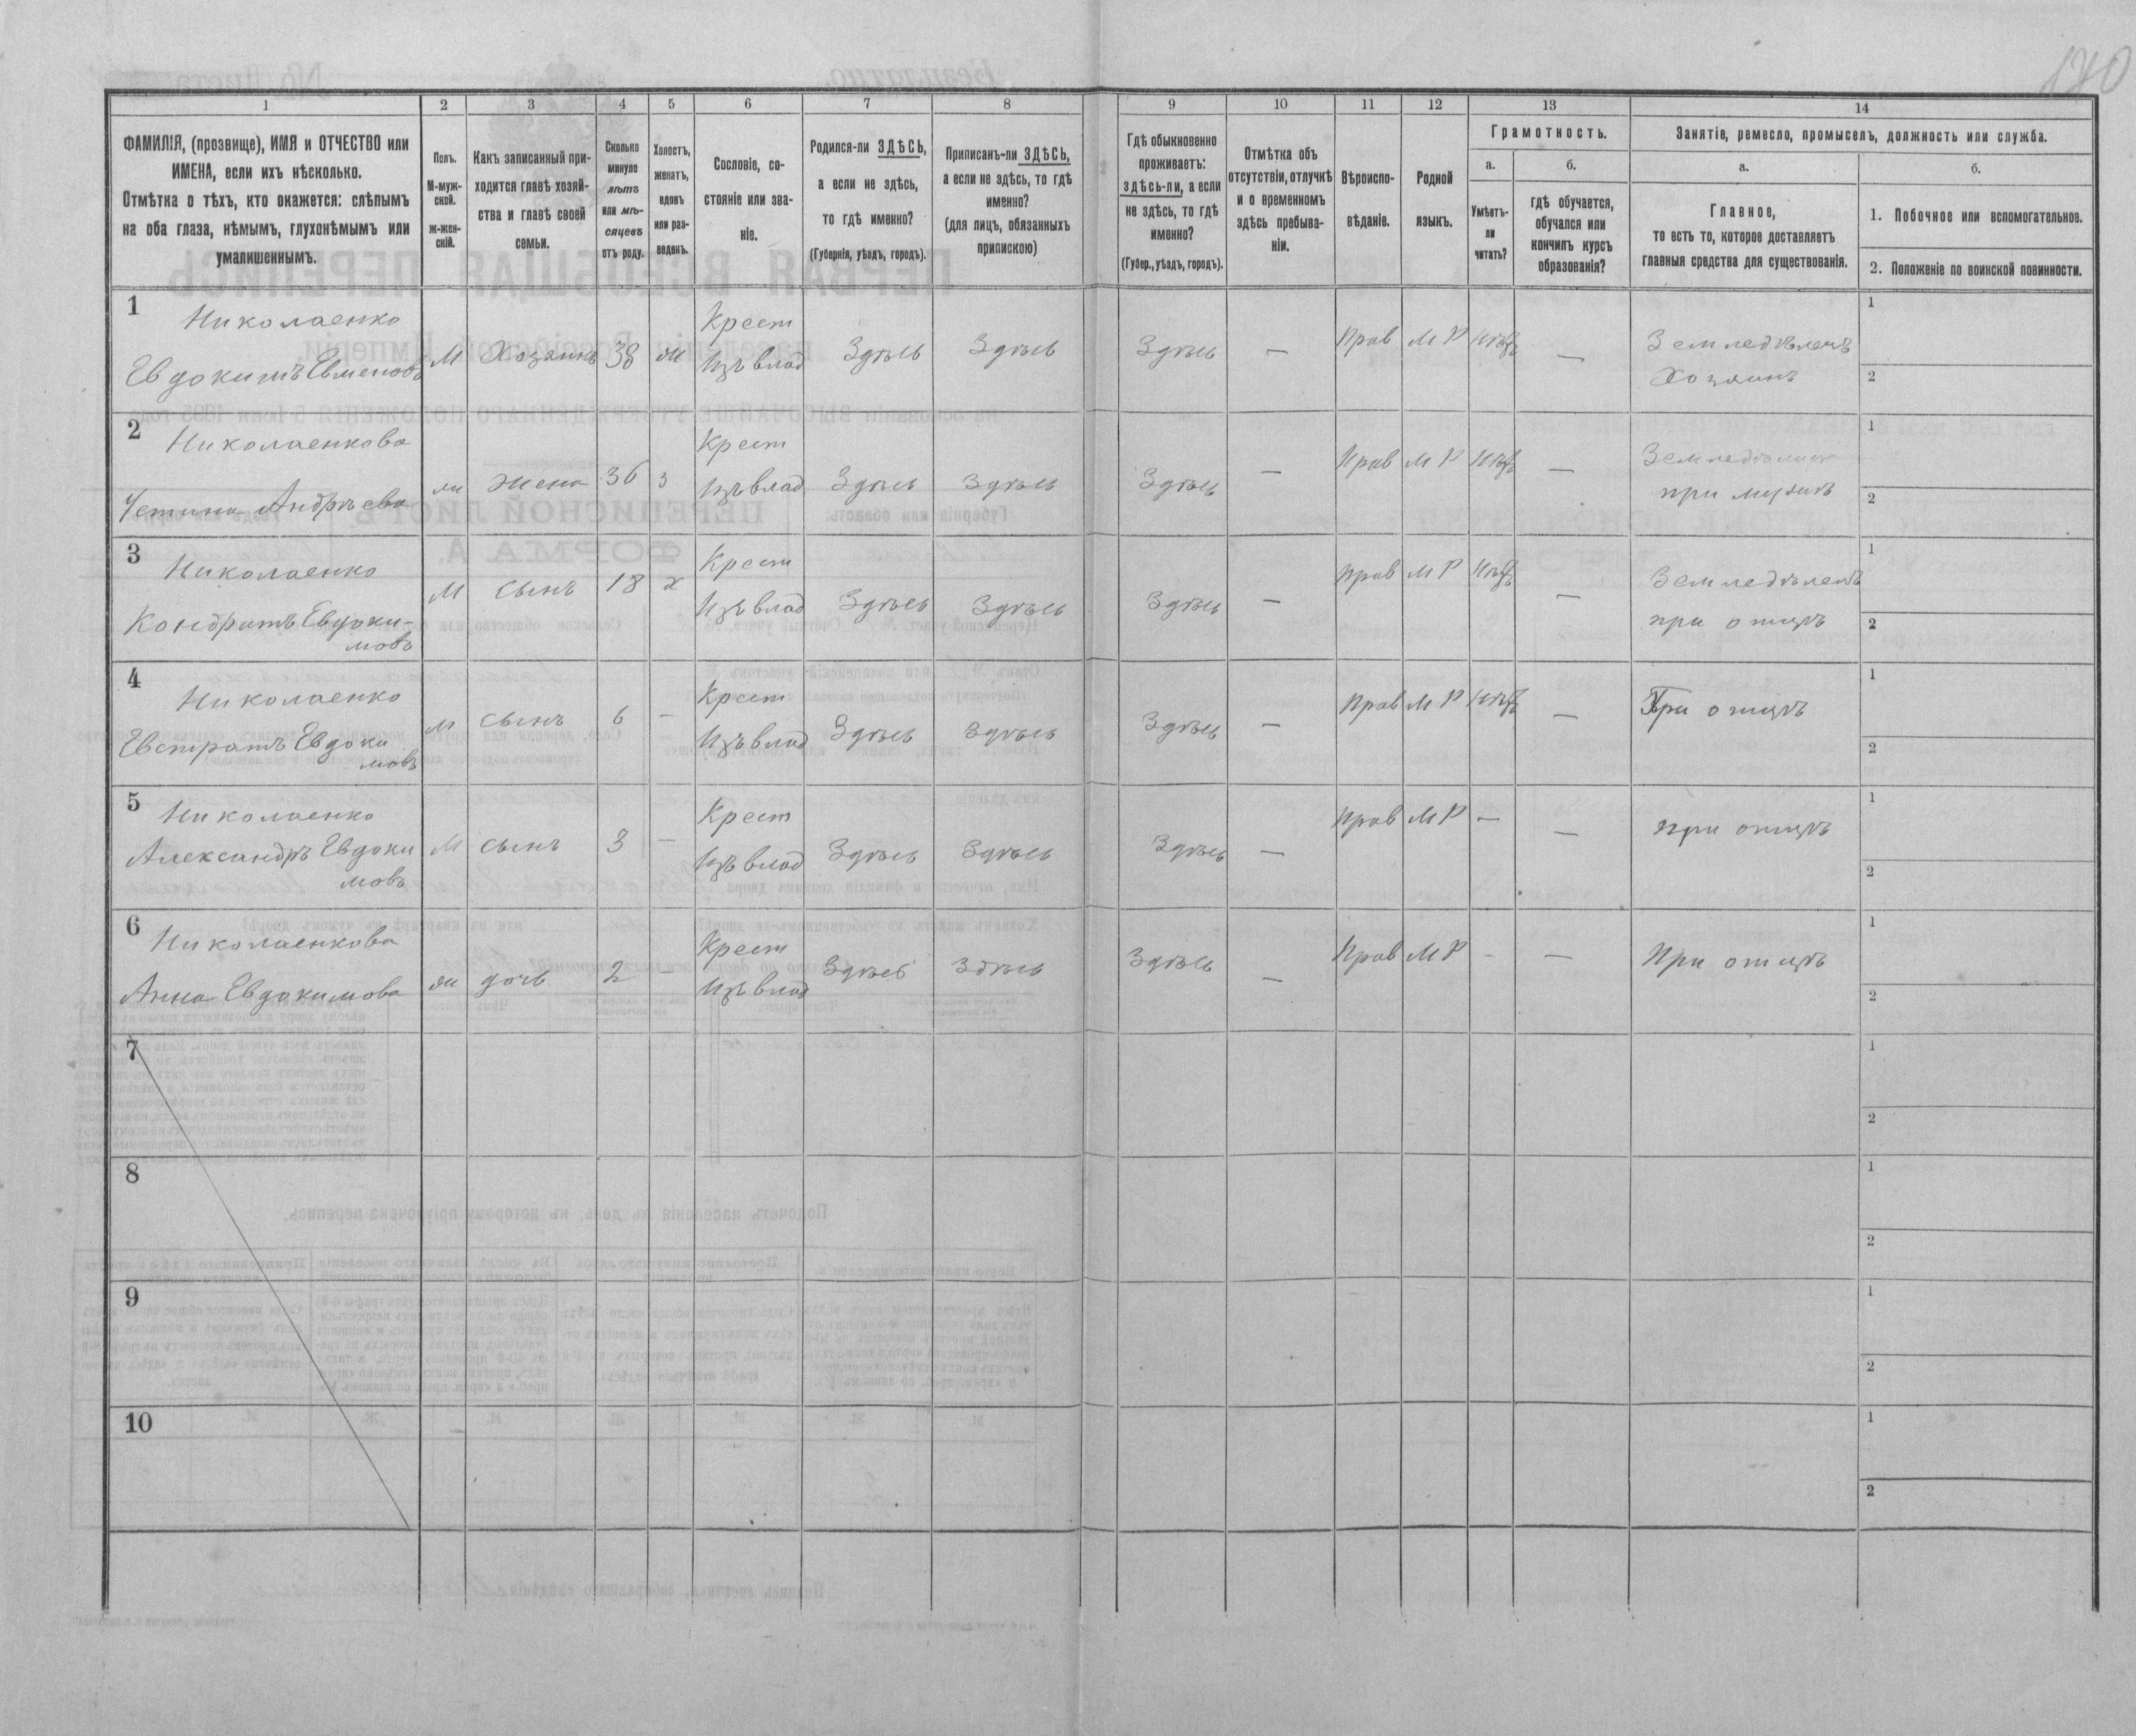 140
1 2 3 4 5 6 7 8 9 10 11 12 13 14
ФАМИЛІЯ, (прозвище), ИМЯ и ОТЧЕСТВО или
ИМЕНА, если ихъ нѣсколько.
Отмѣтка о тѣхъ, кто окажется: слѣпымъ
на оба глаза, нѣмымъ, глухонѣмымъ или
умалишеннымъ.
Полъ.
М-муж-
ской.
ж-жен-
скій.
Какъ записанный при-
ходится главѣ хозяй-
ства и главѣ своей
семьи.
Сколько
минуло
лѣтъ
или мѣ-
сяцевъ
отъ роду.
Холостъ,
женатъ,
вдовъ
или раз-
веденъ.
Сословіе, со-
стояніе или зва-
ніе.
Родился-ли ЗДѢСЬ,
а если не здѣсь,
то гдѣ именно?
(Губернія, уѣздъ, городъ).
Приписанъ-ли ЗДѢСЬ,
а если не здѣсь, то гдѣ
именно?
(для лицъ, обязанныхъ
припискою)
Гдѣ обыкновенно
проживаетъ:
здѣсь-ли, а если
не здѣсь, то гдѣ
именно?
(Губер., уѣздъ, городъ).
Отмѣтка объ
отсутствіи, отлучкѣ
и о временномъ
здѣсь пребыва-
ніи.
Вѣроиспо-
вѣданіе.
Родной
языкъ.
Грамотность.
а.
Умѣетъ-
ли
читать?
б.
гдѣ обучается,
обучался или
кончилъ курсъ
образованія?
Занятіе, ремесло, промыселъ, должность или служба.
а.
Главное,
то есть то, которое доставляетъ
главныя средства для существованія.
б.
1. Побочное или вспомогательное.
2. Положеніе по воинской повинности.
1 Николаенко
Евдокимъ Евменовъ М Хозяинъ 38 ж Крест
Изъ влад Здѣсь Здѣсь Здѣсь — Прав М Р Нѣтъ — Земледѣлецъ
Хозяинъ
1
2
2 Николаенкова
Устина Андрѣева ж жена 36 з Крест
Изъ влад Здѣсь Здѣсь Здѣсь — Прав М Р Нѣтъ —
при мужѣ
1
2
3 Николаенко
Кондратъ Евдоки-
мовъ М сынъ 18 х Крест
Изъ влад Здѣсь Здѣсь Здѣсь — Прав М Р Нѣтъ — Земледѣлецъ
при отцѣ
1
2
4 Николаенко
Евстратъ Евдоки
мовъ М сынъ 6 — Крест
Изъ влад Здѣсь Здѣсь Здѣсь — Прав М Р Нѣтъ — При отцѣ
1
2
5 Николаенко
Александръ Евдоки
мовъ М сынъ 3 — Крест
Изъ влад Здѣсь Здѣсь Здѣсь — Прав М Р — — при отцѣ
1
2
6 Николаенкова
Анна Евдокимова ж дочь 2 — Крест
Изъ влад Здѣсь Здѣсь Здѣсь — Прав М Р - — При отцѣ
1
2
7
1
2
8
1
2
9
1
2
10
1
2